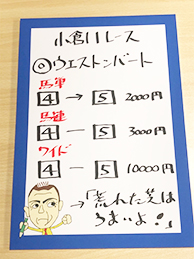 小倉11レース
◎ウエストンバート
馬単
4 → 5 2000円
馬連
4 － 5 3000円
ワイド
4 － 5 10000円
→「荒れた芝は
うまいよ!」